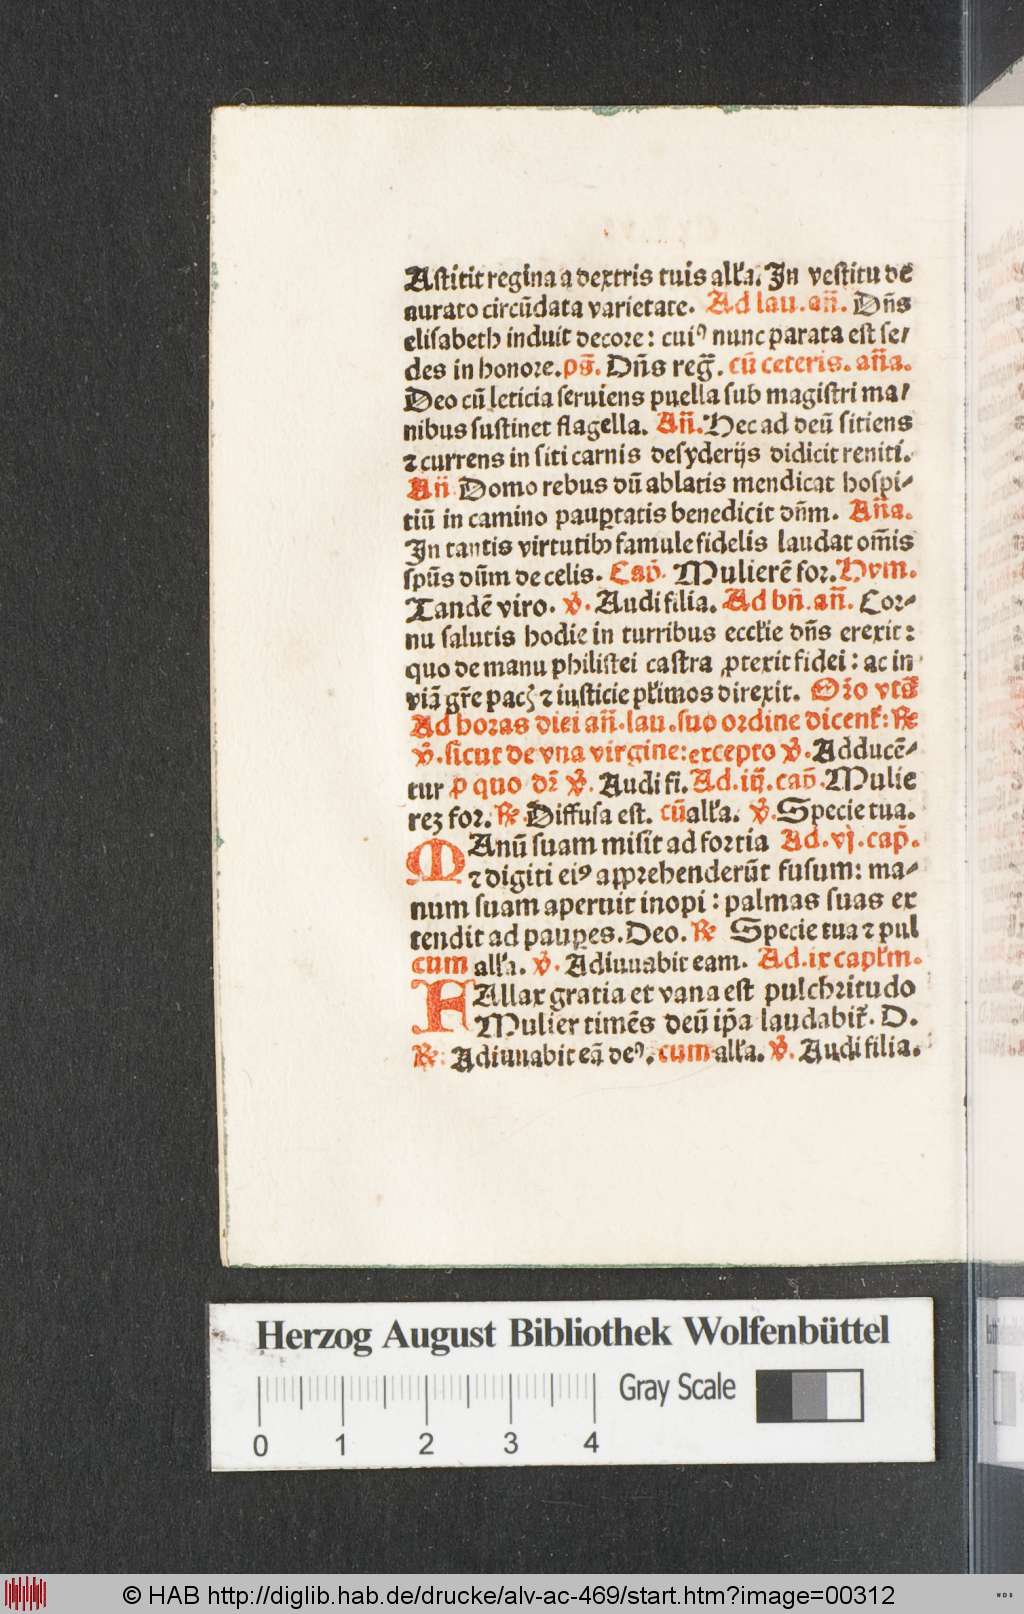 Astitit regina a dextris tuis alľa. In vestitu de
aurato circūdata varietate. Ad lau. añ. Dñs
elisabeth induit decore: cuiꝰ nunc parata est se/
des in honore. ps̄. Dñs reg̃. cū ceteris. aña.
Deo cū leticia seruiens puella sub magistri ma/
nibus sustinet flagella. Añ. Hec ad deū sitiens
⁊ currens in siti carnis desyderijs didicit reniti.
Añ Domo rebus dū ablatis mendicat hospi-
tiū in camino pauꝑtatis benedicit dñm. Aña.
In tantis virtutibꝫ famule fidelis laudat om̄is
sp̄us dūm de celis. Cap̄. Mulierē for. Hym.
Tandē viro. ℣. Audi filia. Ad bñ. añ. Cor-
nu salutis hodie in turribus eccľie dñs erexit:
quo de manu philistei castra ꝓtexit fidei: ac in
viā gr̄e pacꝭ ⁊ iusticie pľimos direxit. Or̄o vts̄
Ad horas diei añ. lau. suo ordine dicent̃: ℟
℣. sicut de vna virgine: excepto ℣. Adducē-
tur ꝓ quo dr̄ ℣. Audi fi. Ad. iij. cap̄. Mulie
reꝫ for. ℟. Diffusa est. cū alľa. ℣. Specie tua.
MAnū suam misit ad fortia Ad. vj. cap̄.
⁊ digiti eiꝰ apprehenderūt fusum: ma-
num suam aperuit inopi: palmas suas ex
tendit ad pauꝑes. Deo. ℟ Specie tua ⁊ pul
cum alľa. ℣. Adiuuabit eam. Ad. ix capľm.
FAllax gratia et vana est pulchritudo
Mulier timēs deū ip̄a laudabit̃. D.
℟: Adiuuabit eā deꝰ. cum alľa. ℣. Audi filia.
Herzog August Bibliothek Wolfenbüttel
Gray Scale
0 1 2 3 4
© HAB http://diglib.hab.de/drucke/alv-ac-469/start.htm?image=00312